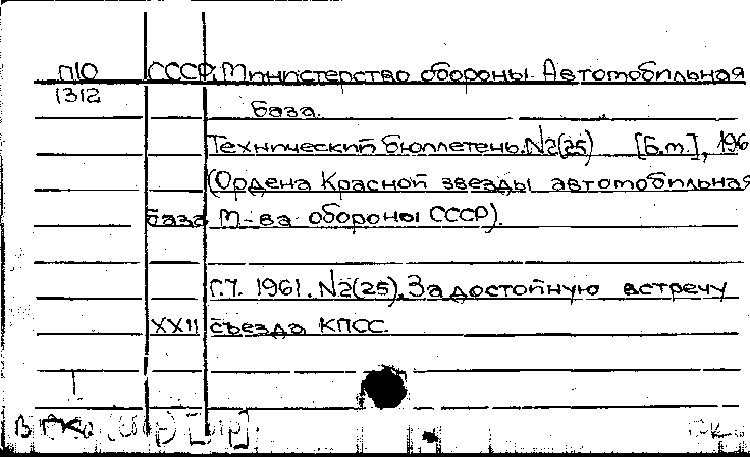 П10 СССР. Министерство обороны. Автомобильная
1312 база.
Технический бюллетень. №2(25) [Б.м.], 196
(Ордена Красной звезды автомобильная
база М-ва обороны СССР).
Г.7. 1961. №2(25). За достойную встречу
XXII съезда КПСС.